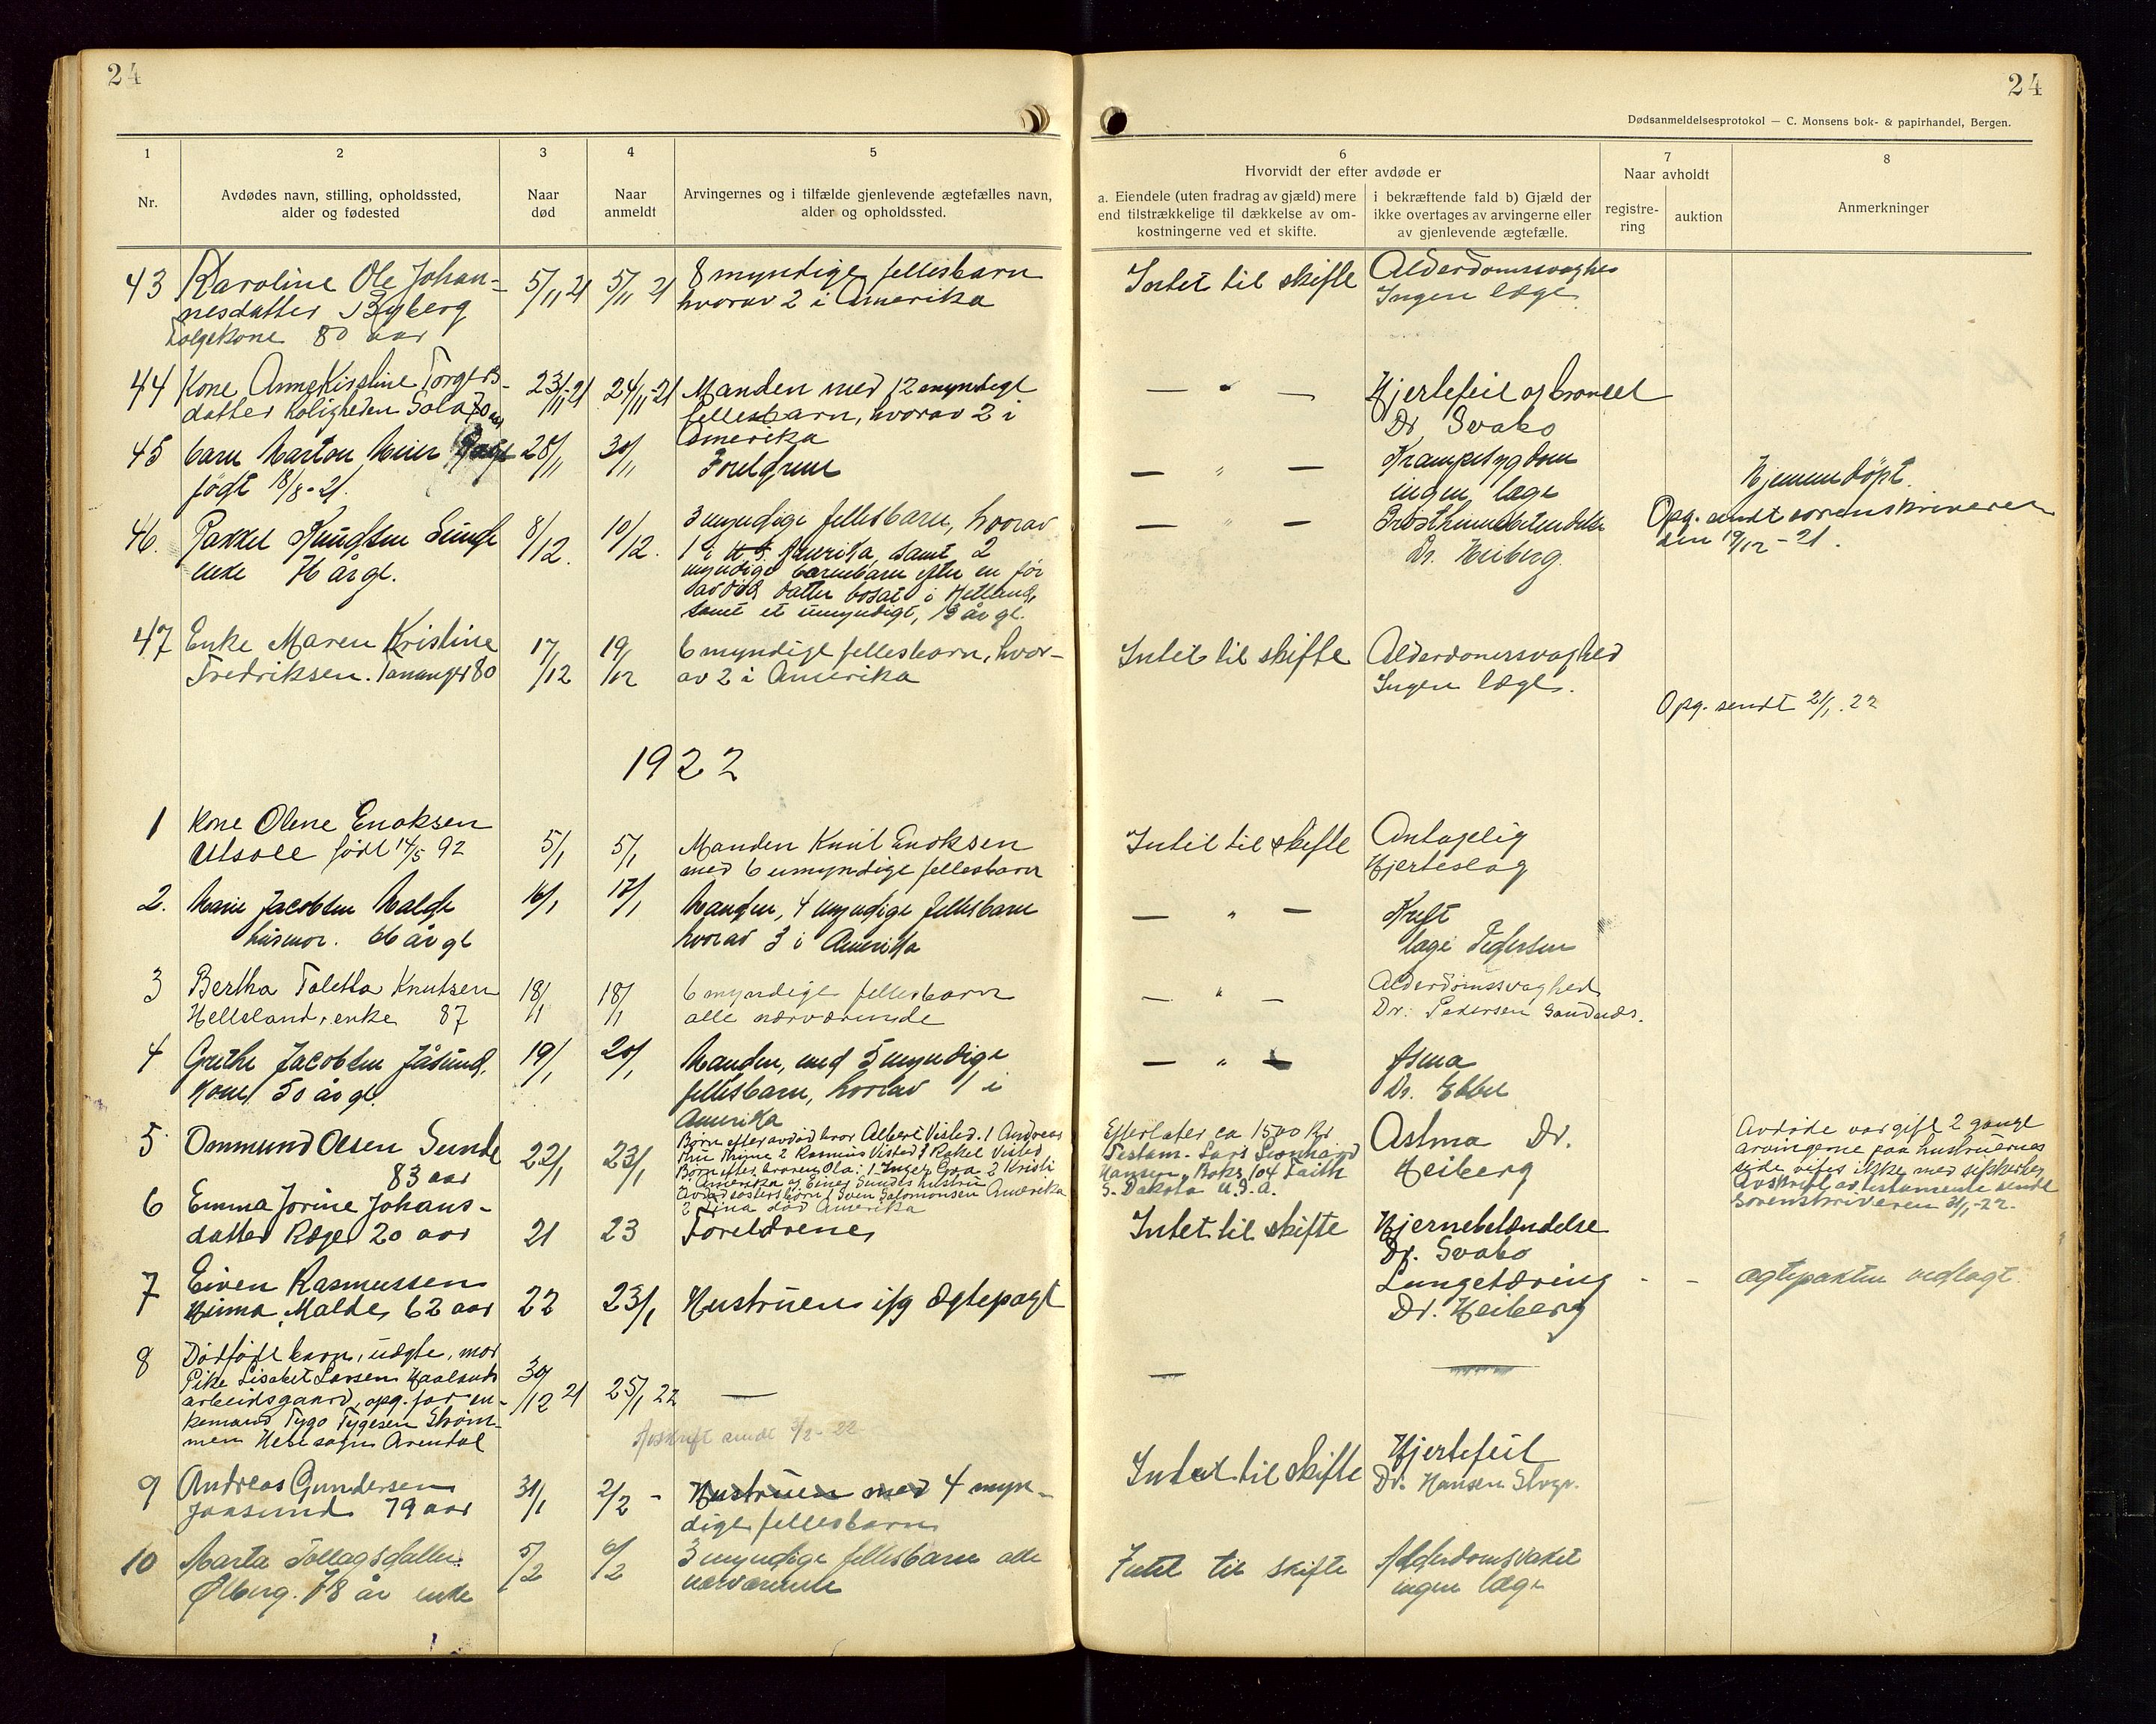 24
24
Dødsanmeldelsesprotokol — C. Monsens bok- & papirhandel, Bergen.
1
2
3
4
5
6
7
8
Nr.
Avdødes navn, stilling, opholdssted,
alder og fødested
Naar
død
Naar
anmeldt
Arvingernes og i tilfælde gjenlevende ægtefælles navn,
alder og opholdssted.
Hvorvidt der efter avdøde er
a. Eiendele (uten fradrag av gjæld) mere
end tilstrækkelige til dækkelse av om-
kostningerne ved et skifte.
i bekræftende fald b) Gjæld der
ikke overtages av arvingerne eller
av gjenlevende ægtefælle.
Naar avholdt
registre-
ring
auktion
Anmerkninger
43 Karoline Ole Johan-
nesdatter Byberg
Folgekone 80 aar
5/11 21 5/11 21
8 myndige fellesbarn
hvorav 2 i Amerika
Intet til skifte
Alderdomssvaghed
Ingen læge
44 Kone Anne Kirstine Torgers-
datter Sola 70 aar
23/11-21 24/11-21
Manden med 12 myndige
fellesbarn, hvorav 2 i
Amerika
— " —
Hjertefeil og
Dr. Svabo
45 barn Marton Meier
født 18/8-21.
28/11 30/11
Foreldrene
— " —
Krampesygdom
ingen læge
Hjemmedöpt.
46. Rakkel Knudsen Sunde
enke 76 år gl.
8/12. 10/12.
3 myndige fellesbarn, hvorav
1 i Amerika, samt 2
myndige barnebarn efter en før
avdød datter bosat i Hetland,
samt et umyndigt, 13 år gl.
— " —
Brysthinnebetendelse
Dr. Heiberg.
Opg. sendt sorenskriveren
den 19/12-21.
47 Enke Maren Kristine
Fredriksen. Tananger 80
17/12 19/12
6 myndige fellesbarn, hvor-
av 2 i Amerika
Intet til skifte
Alderdomssvaghed
Ingen læge.
Opg. sendt 21/1. 22
1922
1 Kone Olene Enoksen
Utsole født 14/5 92
5/1 5/1
Manden Knut Enoksen
med 6 umyndige fellesbarn
Intet til skifte
Antagelig
Hjerteslag
2. Marie Jacobsen Malde
husmor. 66 år gl
16/1 17/1
Manden, 4 myndige fellesbarn
hvorav 3 i Amerika
— " —
Kreft
læge Pedersen
3 Bertha Taletta Knutsen
Helleland, enke 87
18/1 18/1
6 myndige fellesbarn
alle nærværende
— " —
Alderdomssvaghed
Dr. Pedersen Sandnes.
4 Grethe Jacobsen Jåsund,
kone 50 år gl.
19/1 20/1
Manden, med 5 myndige
fellesbarn, hvorav 1 i
Amerika
— " —
Asma
Dr. Ebbel
5 Ommund Olsen Sunde
83 aar
22/1 23/1
Børn efter avdød bror Albert Visted. 1 Andreas
2 Rasmus Visted 3 Rakel Visted
Børn efter broren Ola: 1 Inger Gora 2 Kristi
Amerika og Einer Sundes hustru
Avdød søsters børn 1 Sven Salomonsen Amerika
2 Lina død Amerika
Efterlater ca 1500 kr
Testam. Lars Leonhard
Hansen, Boks 104 Faith
S. Dakota U.S.A.
Astma Dr.
Heiberg
Avdøde var gift 2 gange
arvingerne paa hustruernes
side vites ikke med sikkerhet
Avskrift av testamente sendt
Sorenskriveren 31/1-22.
6 Emma Jorine Johans-
datter Ræge 20 aar
21 23
Forældrene
Intet til skifte
Hjernebetændelse
Dr. Svabo
7 Eiven Rasmussen
Hinna, Malde, 62 aar
22 23/1
Hustruen ifg ægtepagt
Lungetæring
Dr. Heiberg
- - ægtepakten vedlagt.
8 Dødfødt barn, uægte, mor
Pike Lisabet Larsen Haaland
arbeidsgaard, opg. far en-
kemand Tygo Tygesen Strøm-
men Arendal
30/12 21 25/1 22 —
—
Avskrift sendt 3/2-22
9 Andreas Gundersen
Jaasund 79 aar
31/1 2/2 -
Hustruen med 4 myn-
dige fellesbarn
Intet til skifte
Hjertefeil
Dr. Hansen Stvgr.
10 Marta Tollagsdatter
Ølberg. 78 år enke
5/2 6/2
3 myndige fellesbarn alle
nærværende
Intet til skifte
Alderdomsvaket
ingen læge